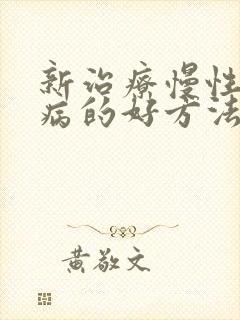 新治療慢性
病的好方法
黃敬文